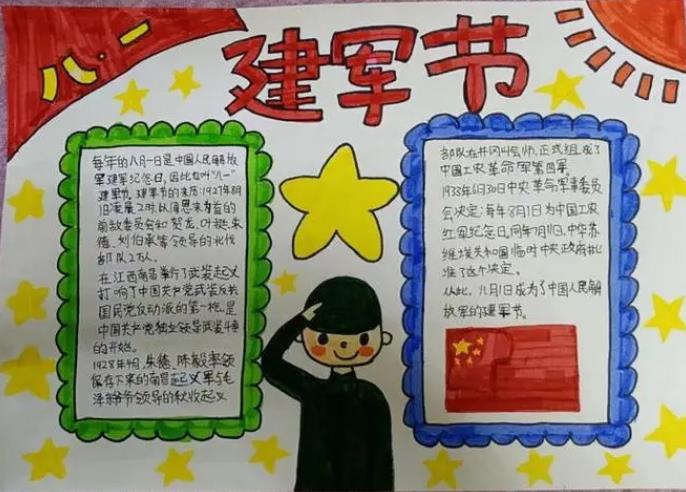 八·一
建军节
每年的八月一日是中国人民解放
军建军纪念日,因此也叫"八一"
建军节。建军节的来历:1927年8月
1日凌晨2时,以周恩来为首的
前敌委员会和贺龙、叶挺、朱
德、刘伯承等领导的北伐
部队2万人。
在江西南昌举行了武装起义
打响了中国共产党武装反抗
国民党反动派的第一枪,是
中国共产党独立领导武装斗争
的开始。
1928年4月,朱德、陈毅率领
保存下来的南昌起义军与毛
泽东爷爷领导的秋收起义
部队在井冈山会师,正式组成了
中国工农革命军第四军。
1933年6月30日中央革命军事委员
会决定:每年8月1日为中国工农
红军纪念日,同年7月1日,中华苏
维埃共和国临时中央政府批
准了这个决定。
从此,八月1日成为了中国人民解
放军的建军节。